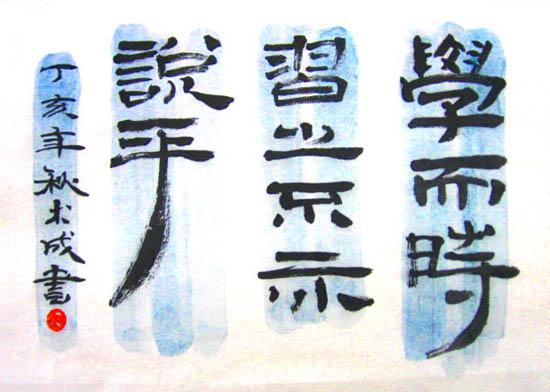 學而時
習之不亦
說乎
丁亥年秋成書